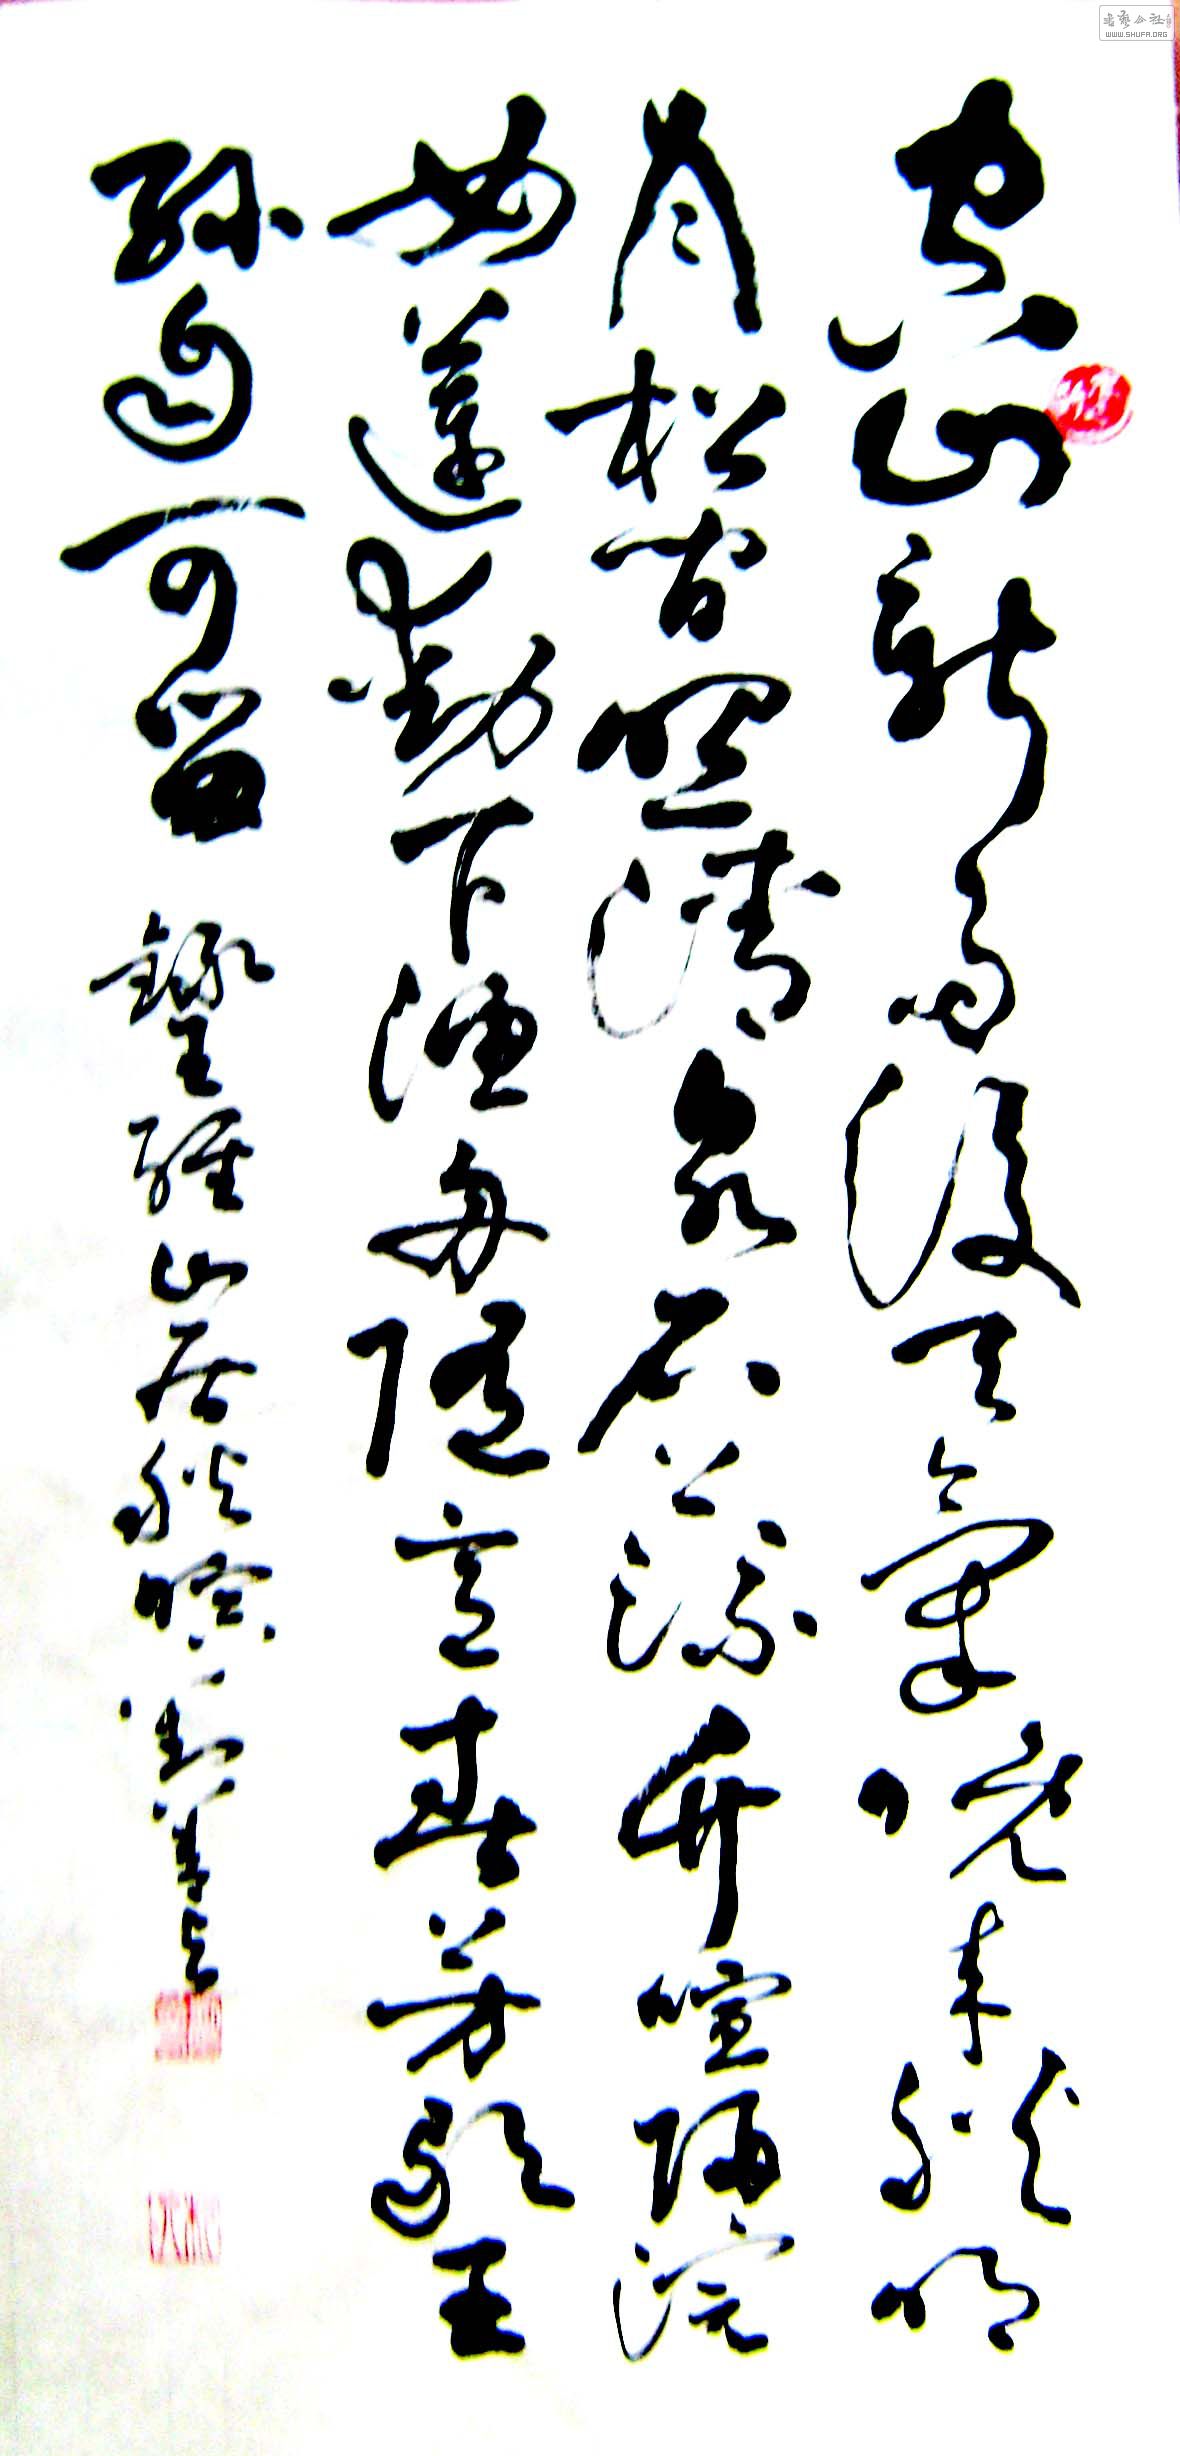 空山新雨後天氣晚來秋明
月松間照清泉石上流竹喧歸浣
女蓮動下漁舟隨意春芳歇王
孫自可留 錄王維山居秋暝
書藝公社
WWW.SHUFA.ORG